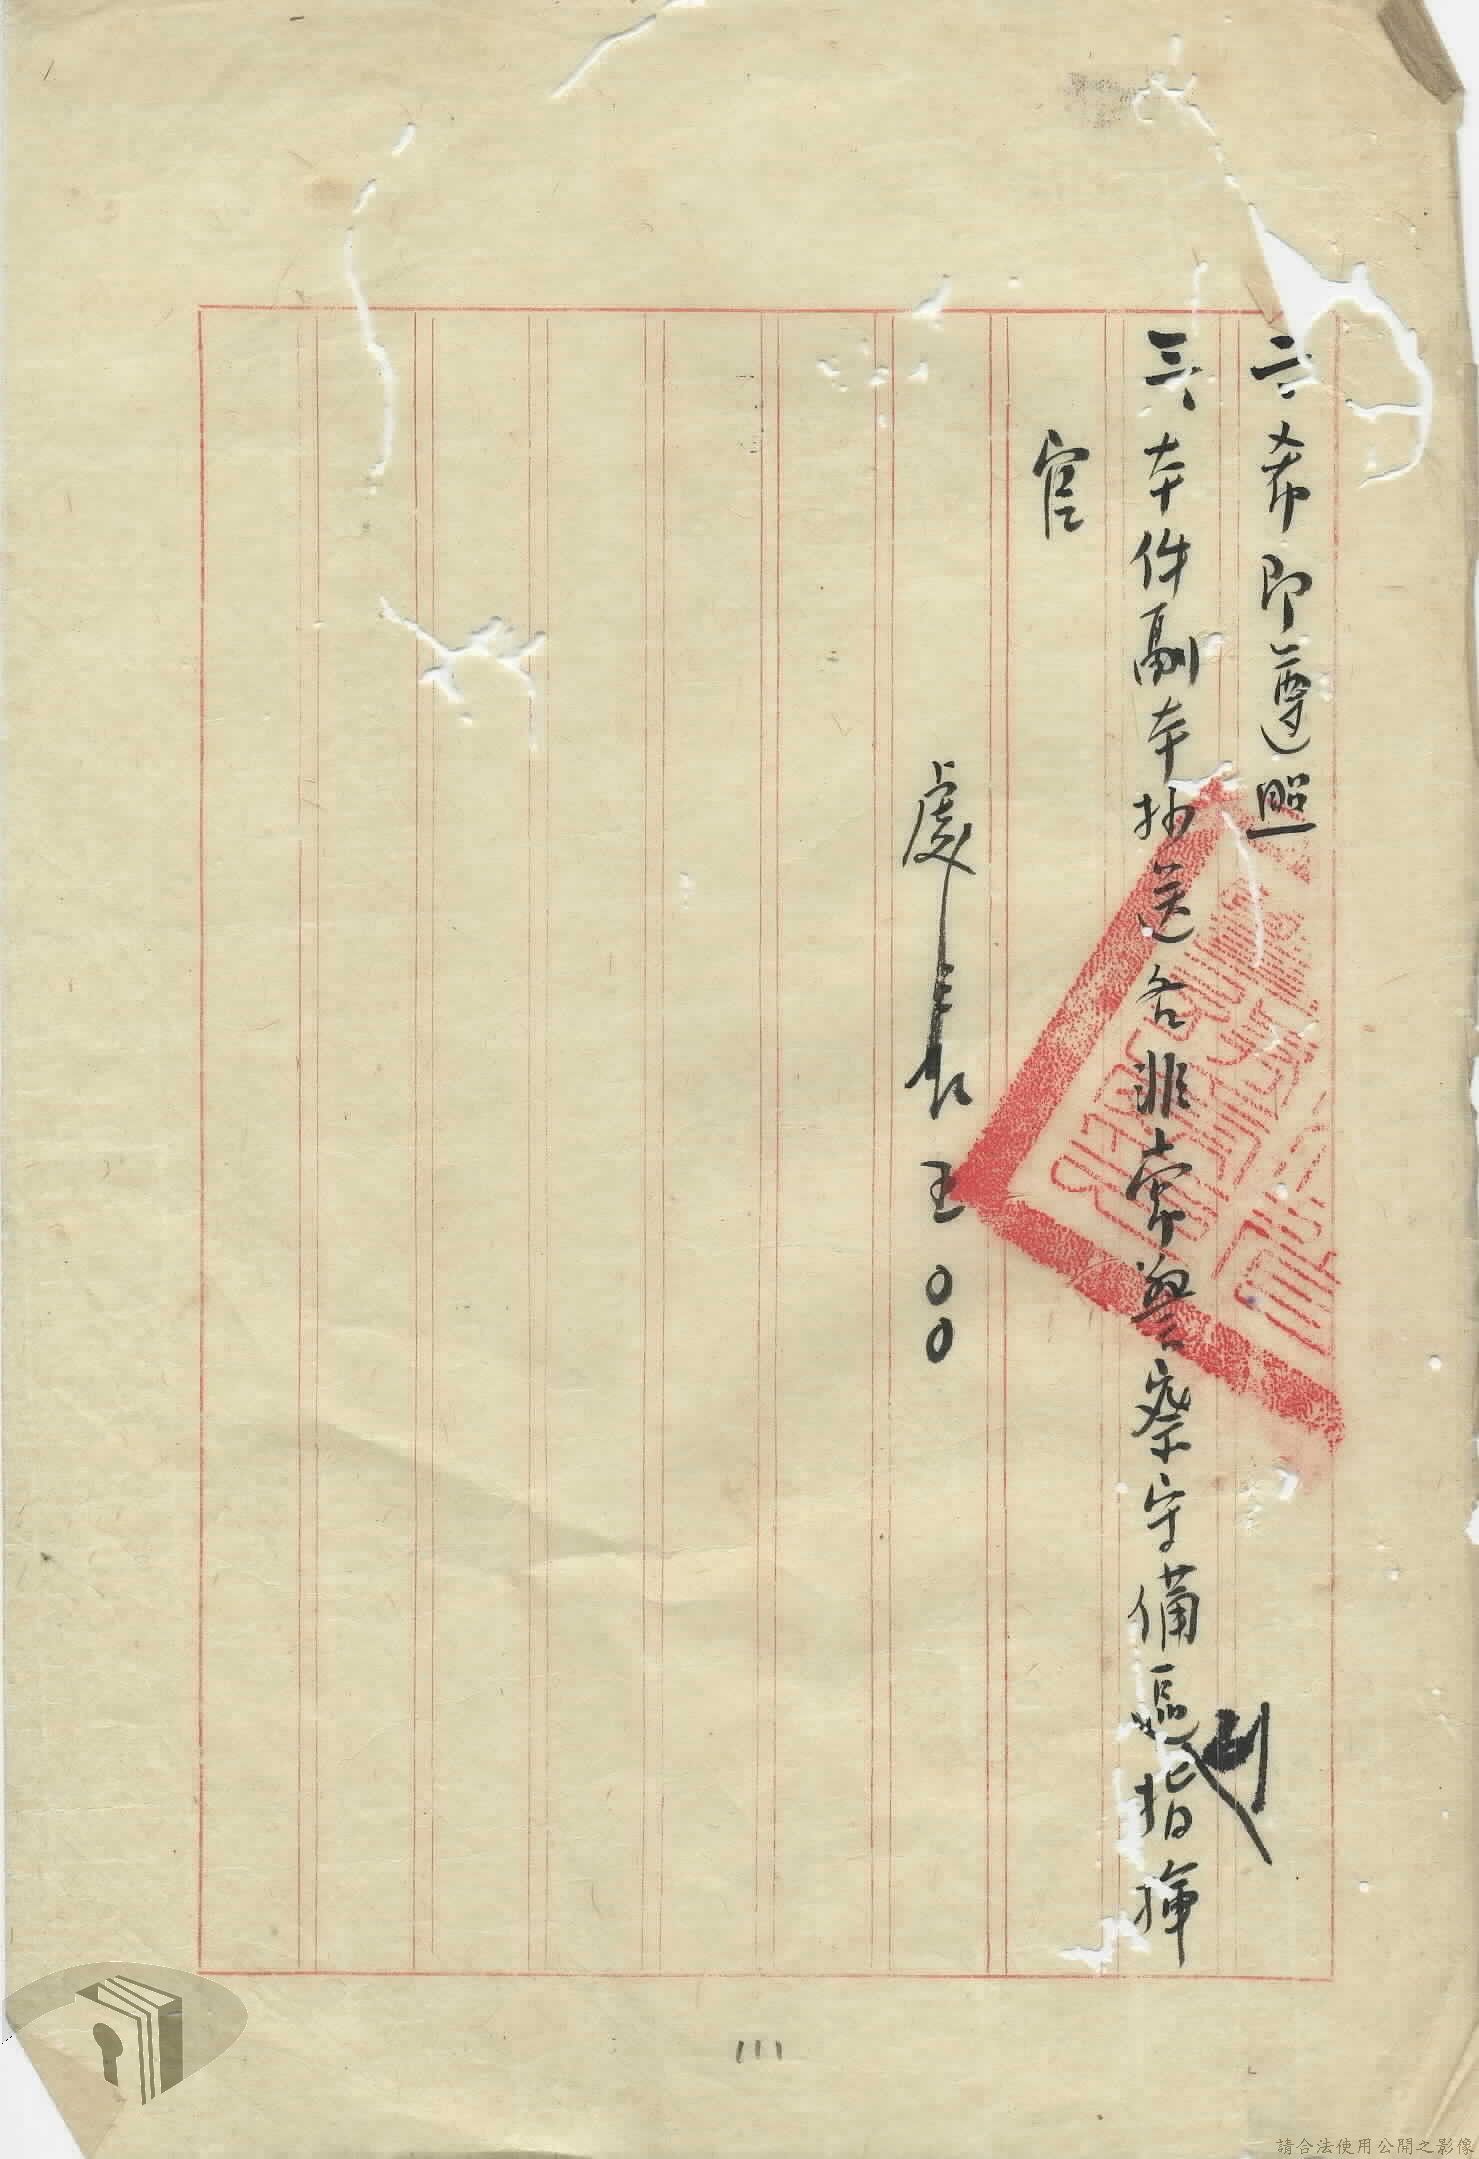 二、希即遵照
三、本件副本抄送各非常警察守備區指揮
官
處長王〇〇
111
請合法使用公開之影像